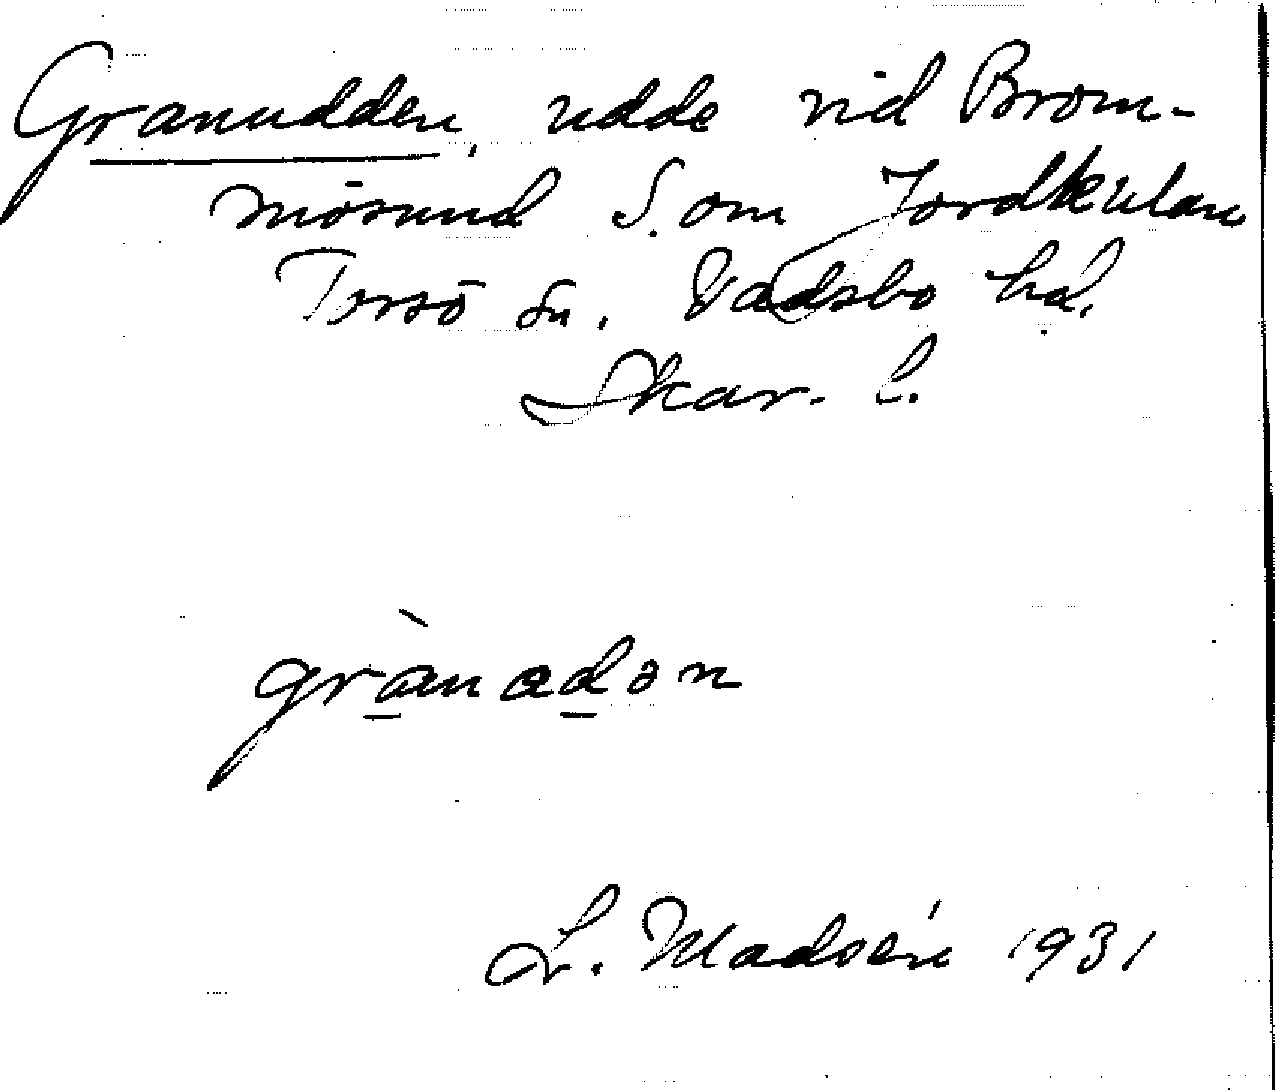 Granudden, udde vid Brom-
mösund S. om Jordkulan
Torsö sn. Vadsbo hd.
Skar. l.
grànadən
L. Madsén 1931